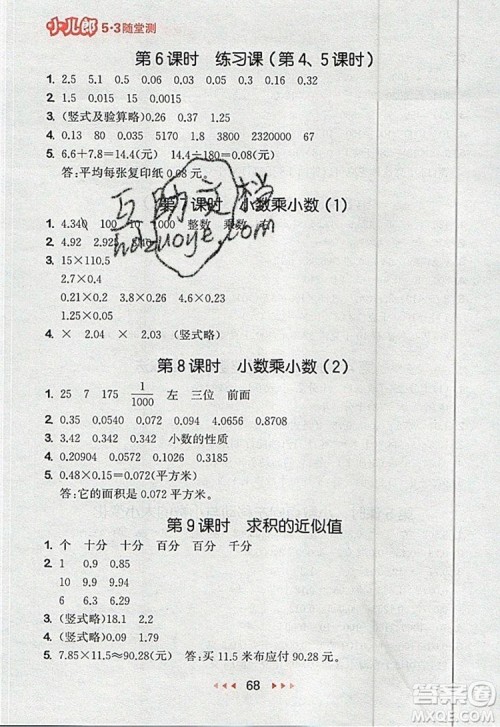 小儿郎 5·3随堂测
第6课时 练习课(第4、5课时)
1. 2.5 5.1 0.5 0.21 5.1
2. 0.15 1.5 0.015 0.0015
3. (竖式及验算略)0.26 0.37 1.35
4. 0.13 80 0.035 5170 1.8 3.3 2320000 67
5. 6.6+7.8=14.4(元) 14.4÷180=0.08(元)
答:平均每张复印纸0.08元。
第7课时 小数乘小数(1)
1. 4.340 100 10 1000 整数 乘数 右
2. 4.92
3. 15×110.5
2.7×0.4
0.21×0.2 3.6×2.8 0.3×0.25
1.25×0.15
4. × 2.04 × 2.03 (竖式略)
第8课时 小数乘小数(2)
1. 25 7 175 1/1000 左 三位 前面
2. 0.35 0.0540 0.072 0.0658 0.4064 0.8708
3. 3.42 0.342 0.3420 小数的性质
4. 0.2886 0.0406 0.1026 0.19024 0.3185
5. 0.48×0.15=0.072(平方米)
答:它的面积是0.072平方米。
第9课时 求积的近似值
1. 个 十分 十分 百分 百分 千分
2. 1 0.9 0.85
10 9.9 9.90
6 6.3 6.29
3. (竖式略)18.1 2.2
4. (竖式略)0.94 1.20
5. 7.85×11.5≈90.28(元) 答:买11.5米布应付90.28元。
68
互助文档
hdzuoye.com
答案圈
MXQE.COM